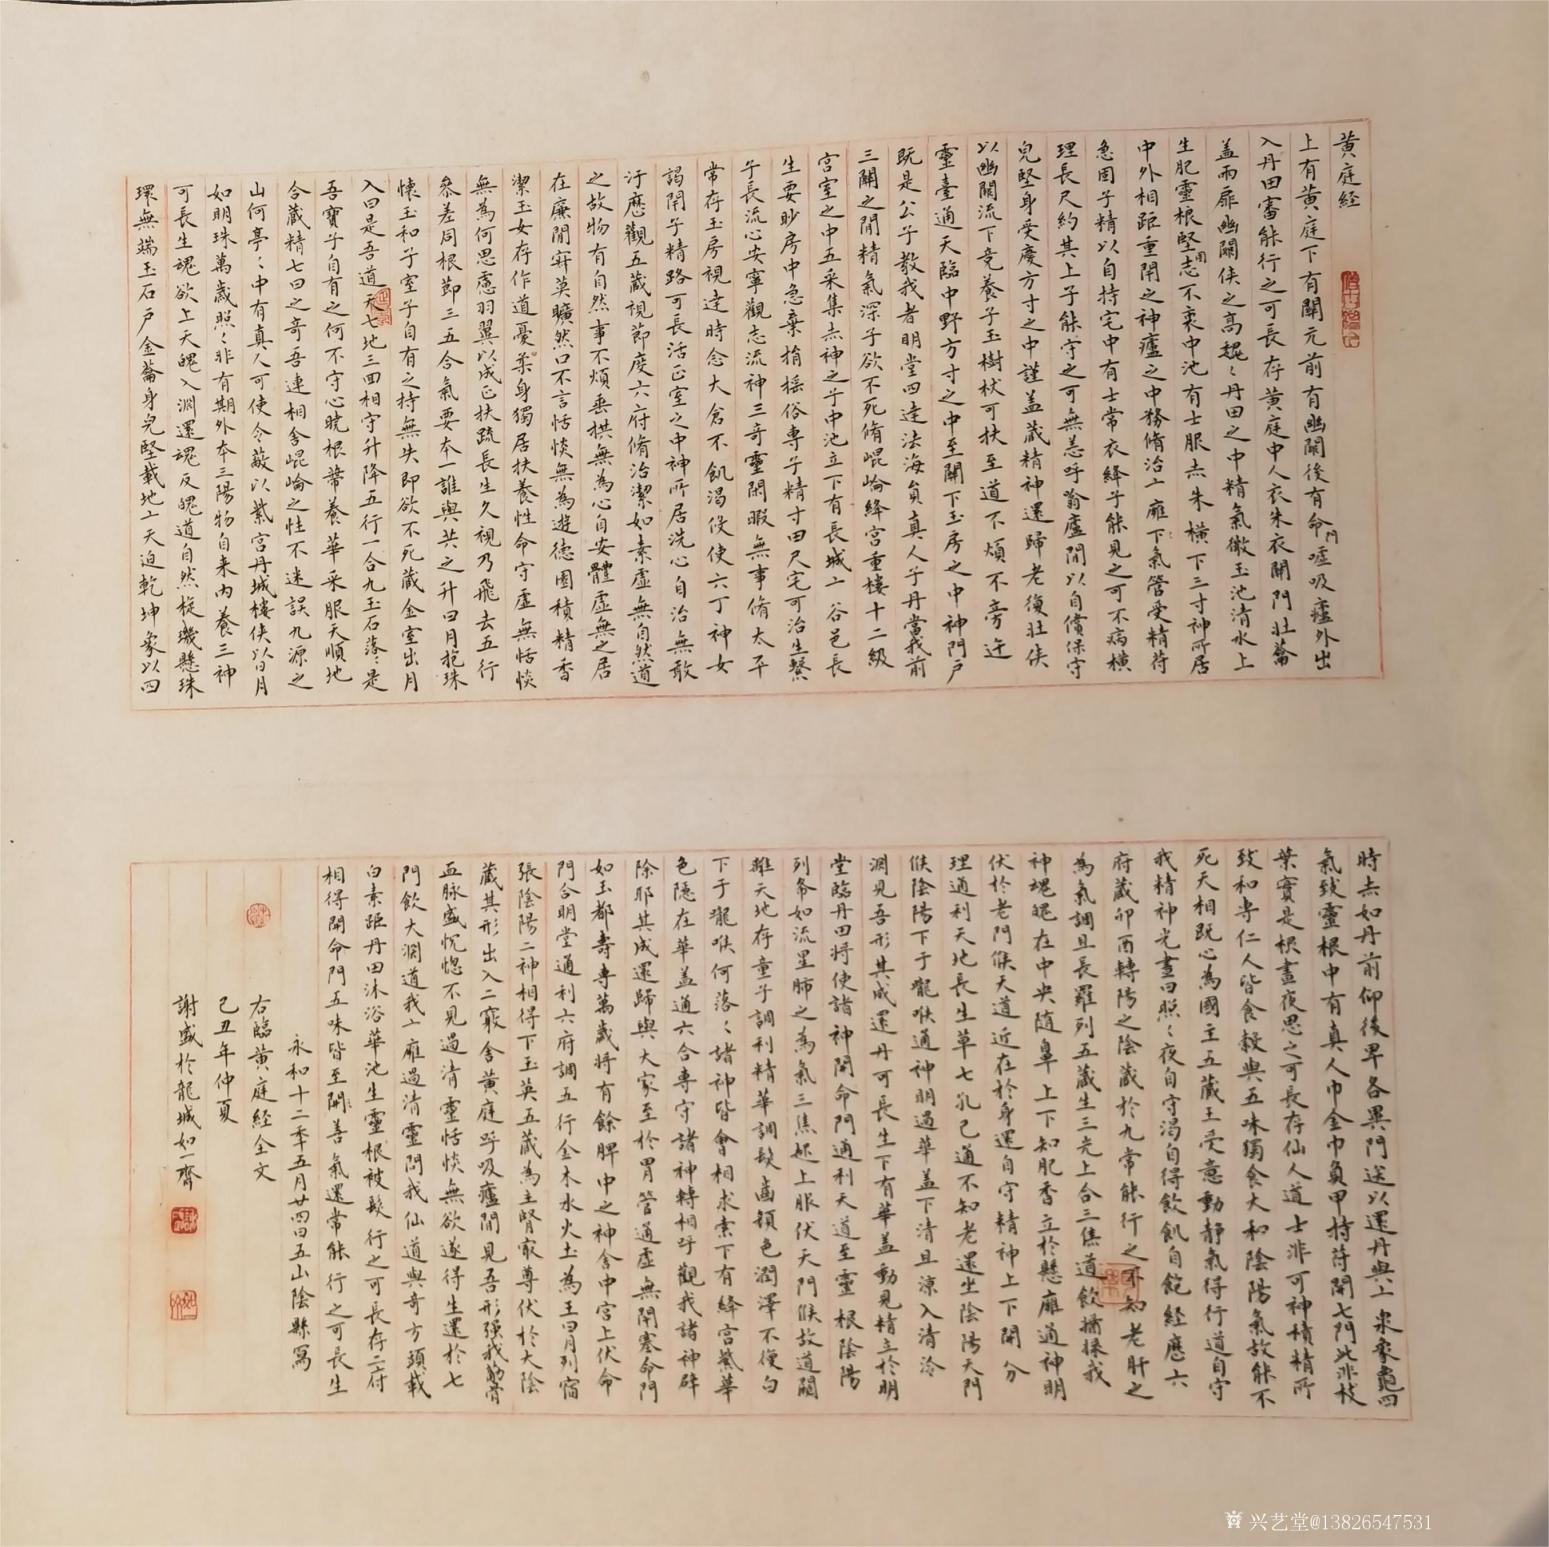 黃庭經
上有黃庭下有關元前有幽關後有命門噓吸廬外出
入丹田審能行之可長存黃庭中人衣朱衣關門壯籥
蓋兩扉幽關俠之高魏〻丹田之中精氣微玉池清水上
生肥靈根堅志不衰中池有士服赤朱橫下三寸神所居
中外相距重閉之神廬之中務脩治上癰下氣管受精苻
急固子精以自持宅中有士常衣絳子能見之可不病橫
理長尺約其上子能守之可無恙呼翕廬間以自償保守
皃堅身受慶方寸之中謹蓋藏精神還歸老復壯俠
以幽關流下竟養子玉樹杖可扶至道不煩不旁迕
靈臺通天臨中野方寸之中至關下玉房之中神門戶
既是公子教我者明堂四達法海員真人子丹當我前
三關之間精氣深子欲不死脩崐崘絳宮重樓十二級
宮室之中五采集赤神之子中池立下有長城上谷邑長
生要眇房中急棄捐搖俗專子精寸田尺宅可治生繫
子長流心安寧觀志流神三奇靈閑暇無事脩太平
常存玉房視達時念大倉不飢渴役使六丁神女
謁閉子精路可長活正室之中神所居洗心自治無敢
汙歷觀五藏視節度六府脩治潔如素虛無自然道
之故物有自然事不煩垂拱無為心自安體虛無之居
在廉間寂莫曠然口不言恬惔無為遊德園積精香
潔玉女存作道憂柔身獨居扶養性命守虛無恬惔
無為何思慮羽翼以成正扶疏長生久視乃飛去五行
參差同根節三五合氣要本一誰與共之升日月抱珠
懷玉和子室子自有之持無失即欲不死藏金室出月
入日是吾道天七地三回相守升降五行一合九玉石落〻是
吾寶子自有之何不守心曉根蒂養華采服天順地
合藏精七日之奇吾連相舍崐崘之性不迷誤九源之
山何亭〻中有真人可使令蔽以紫宮丹城樓俠以日月
如明珠萬歲照〻非有期外本三陽物自来內養三神
可長生魂欲上天魄入淵還魂反魄道自然旋璣懸珠
環無端玉石戶金籥身完堅載地上天迫乾坤象以四
時赤如丹前仰後卑各異門送以還丹與上泉象龜四
氣致靈根中有真人巾金巾負甲持苻開七門此非枝
葉實是根晝夜思之可長存仙人道士非可神積精所
致和專仁人皆食穀與五味獨食大和陰陽氣故能不
死天相既心為國主五藏王受意動靜氣得行道自守
我精神光晝日照〻夜自守渴自得飲飢自飽経歷六
府藏卯酉轉陽之陰藏於九常能行之不知老肝之
為氣調且長羅列五藏生三光上合三焦道飲攝採我
神魂魄在中央隨鼻上下知肥香立於懸癰通神明
伏於老門候天道近在於身還自守精神上下開分
理通利天地長生草七孔已通不知老還坐陰陽天門
候陰陽下于嚨喉通神明過華蓋下清且涼入清泠
淵見吾形其成還丹可長生下有華蓋動見精立於明
堂臨丹田将使諸神開命門通利天道至靈根陰陽
列布如流星肺之為氣三焦起上服伏天門候故道闚
離天地存童子調利精華調髮齒顏色潤澤不復白
下于嚨喉何落〻諸神皆會相求索下有絳宮紫華
色隱在華蓋通六合專守諸神轉相呼觀我諸神辟
除耶其成還歸與大家至於胃管通虛無閉塞命門
如玉都壽專萬歲将有餘脾中之神舍中宮上伏命
門合明堂通利六府調五行金木水火土為王日月列宿
張陰陽二神相得下玉英五藏為主腎㝡尊伏於大陰
藏其形出入二竅舍黃庭呼吸廬間見吾形强我筋骨
血脉盛恍惚不見過清靈恬惔無欲遂得生還於七
門飲大淵道我上癰過清靈問我仙道與奇方頭載
白素距丹田沐浴華池生靈根被髮行之可長存二府
相得開命門五味皆至開善氣還常能行之可長生
永和十二年五月廿四日五山陰縣寫
右臨黃庭經全文
己丑年仲夏
謝盛於龍城如一齋
兴艺堂@13826547531